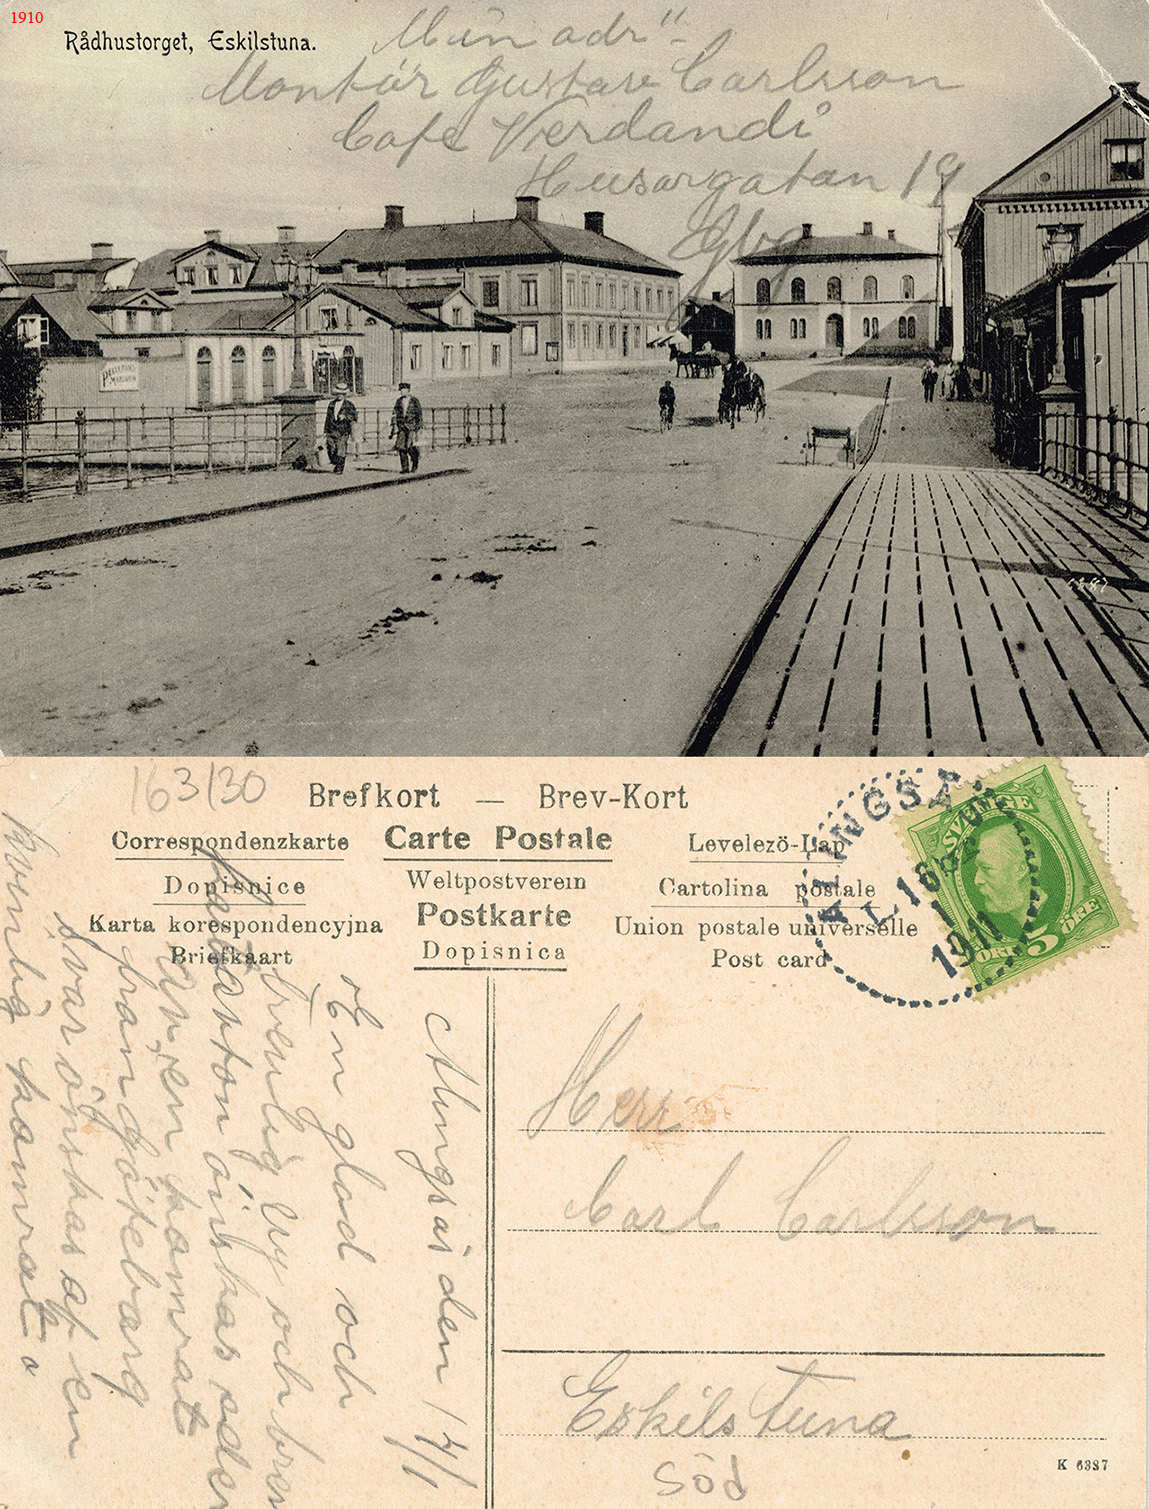 1910
Rådhustorget, Eskilstuna.
Min adr"-
Montör Gustav Carlsson
Cafe Verdandi
Husargatan 19
Gbg
6387
163/30
Brefkort — Brev-Kort
Correspondenzkarte Carte Postale Levelezö-Lap
Dopisnice Weltpostverein Cartolina postale
Karta korespondencyjna Postkarte Union postale universelle
Briefkaart Dopisnica Post card
SVERIGE
5
ÖRE
ALINGSÅS
1
1911
Alingsås den 14/1
En glad och
trevlig och
önskas
av en kamrat
från Göteborg
Svar önskas af en
kvinlig kamrat
Herr
Carl Carlsson
Eskilstuna
Söd
K 6387